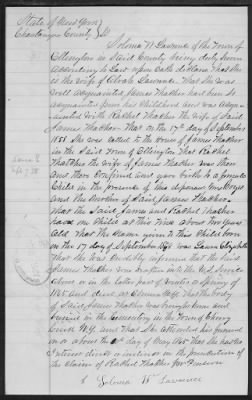 State of New York
Chautauqua County SS
Soloma W Lawrence of the Town of
Ellington in Said County being duly Sworn
according to Law upon oath declares that She
is the wife of Lawrence That She was
well acquainted James Thacher had been So
acquainted from his Childhood and was acqua-
inted with Rachel Thacher the Wife of Said
James Thacher That on the 17th day of September
1858 She was called to the house of James Thacher
in the Said Town of Ellington That Rachel
Thacher the wife of James Thacher was then
and there Confined and gave birth to a female
Child in the presence of this deponent
and the Mother of Said James Thacher
That the Said James and Rachel Thacher
have one Child at this Time about two years
old That the Name given to this Child born
on the 17 day of September 1858 was Laura Elizabeth
That She was Credibly informed that the Said
James Thacher was drafted into the U.S. Service
about or in the later part of winter or Spring of
1865 and died on That the body
of Said James Thacher was brought home and
buried in the Cemetery in the Town of Cherry
Creek N.Y. and that She attended his funeral
on or about the day of May 1865 That She has no
interest direct or indirect in the prosecution of
the Claim of Rachel Thacher for Pension
Soloma W Lawrence